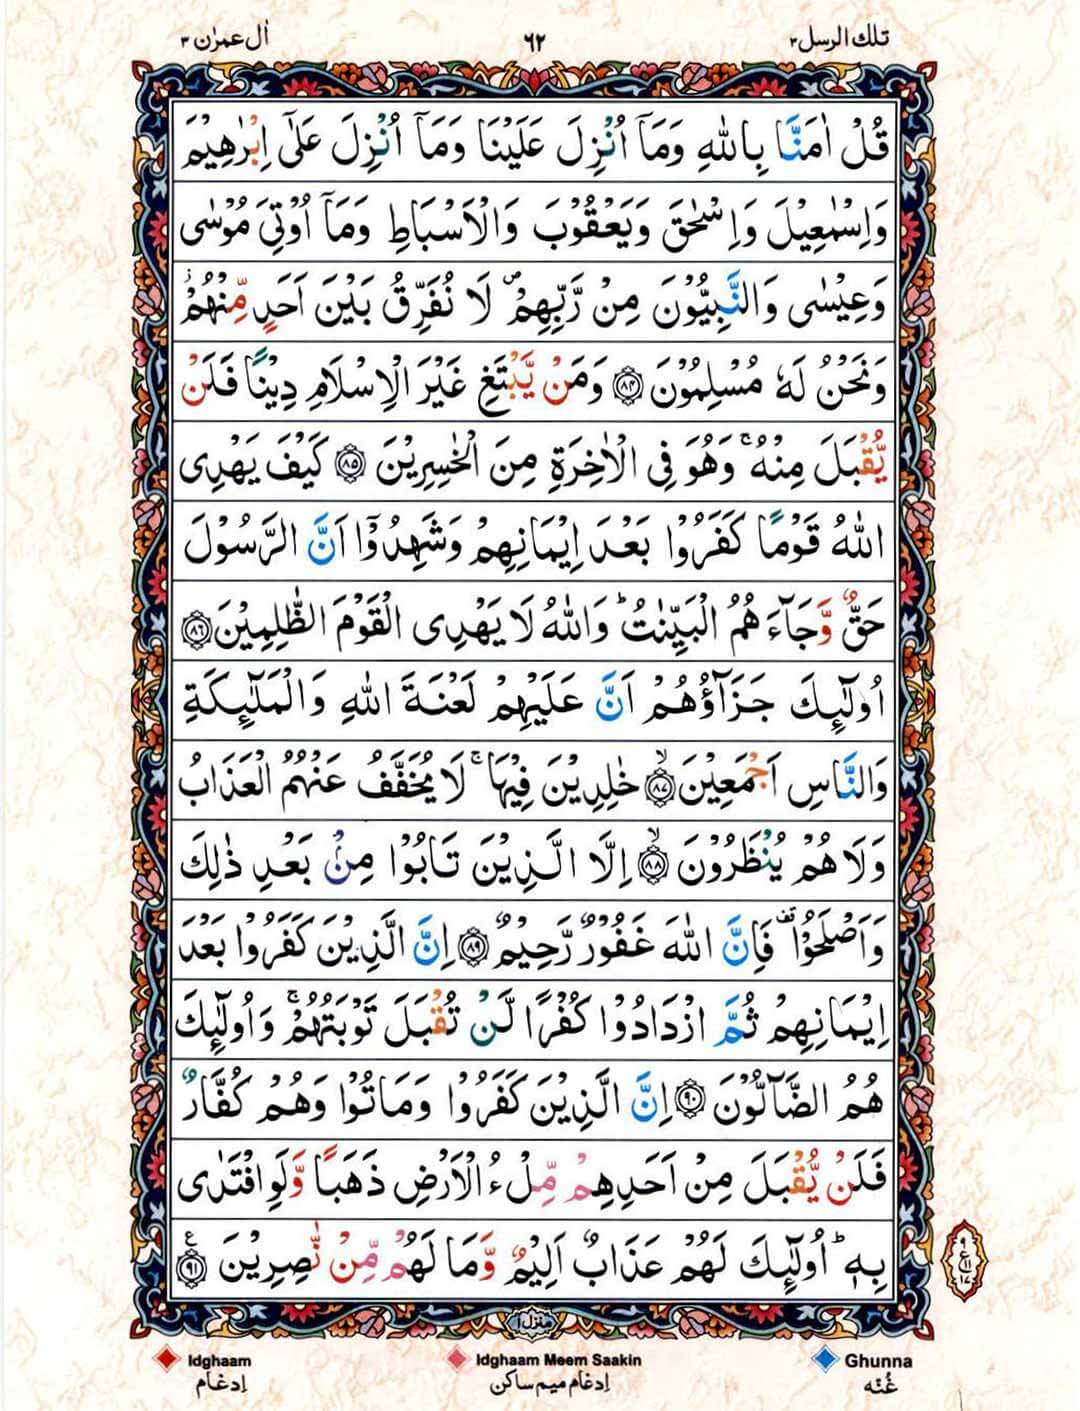 تلك الرسل ٣
٦٢
اٰل عمرٰن ٣
قُلْ اٰمَنَّا بِاللّٰهِ وَمَاۤ اُنْزِلَ عَلَيْنَا وَمَاۤ اُنْزِلَ عَلٰۤى اِبْرٰهِيْمَ
وَاِسْمٰعِيْلَ وَاِسْحٰقَ وَيَعْقُوْبَ وَالْاَسْبَاطِ وَمَاۤ اُوْتِىَ مُوْسٰى
وَعِيْسٰى وَالنَّبِيُّوْنَ مِنْ رَّبِّهِمْ ۪ لَا نُفَرِّقُ بَيْنَ اَحَدٍ مِّنْهُمْ ؗ
وَنَحْنُ لَهٗ مُسْلِمُوْنَ ۝٨٤ وَمَنْ يَّبْتَغِ غَيْرَ الْاِسْلَامِ دِيْنًا فَلَنْ
يُّقْبَلَ مِنْهُ ۚ وَهُوَ فِى الْاٰخِرَةِ مِنَ الْخٰسِرِيْنَ ۝٨٥ كَيْفَ يَهْدِى
اللّٰهُ قَوْمًا كَفَرُوْا بَعْدَ اِيْمَانِهِمْ وَشَهِدُوْۤا اَنَّ الرَّسُوْلَ
حَقٌّ وَّجَآءَهُمُ الْبَيِّنٰتُ ؕ وَاللّٰهُ لَا يَهْدِى الْقَوْمَ الظّٰلِمِيْنَ ۝٨٦
اُولٰٓئِكَ جَزَآؤُهُمْ اَنَّ عَلَيْهِمْ لَعْنَةَ اللّٰهِ وَالْمَلٰٓئِكَةِ
وَالنَّاسِ اَجْمَعِيْنَ ۝٨٧ ۙ خٰلِدِيْنَ فِيْهَا ۚ لَا يُخَفَّفُ عَنْهُمُ الْعَذَابُ
وَلَا هُمْ يُنْظَرُوْنَ ۝٨٨ ۙ اِلَّا الَّذِيْنَ تَابُوْا مِنْۢ بَعْدِ ذٰلِكَ
وَاَصْلَحُوْا ۫ فَاِنَّ اللّٰهَ غَفُوْرٌ رَّحِيْمٌ ۝٨٩ اِنَّ الَّذِيْنَ كَفَرُوْا بَعْدَ
اِيْمَانِهِمْ ثُمَّ ازْدَادُوْا كُفْرًا لَّنْ تُقْبَلَ تَوْبَتُهُمْ ۚ وَاُولٰٓئِكَ
هُمُ الضَّآلُّوْنَ ۝٩٠ اِنَّ الَّذِيْنَ كَفَرُوْا وَمَاتُوْا وَهُمْ كُفَّارٌ
فَلَنْ يُّقْبَلَ مِنْ اَحَدِهِمْ مِّلْءُ الْاَرْضِ ذَهَبًا وَّلَوِ افْتَدٰى
بِهٖ ؕ اُولٰٓئِكَ لَهُمْ عَذَابٌ اَلِيْمٌ وَّمَا لَهُمْ مِّنْ نّٰصِرِيْنَ ۝٩١ ع
٩
ع ١١
١٧
منزل ١
Idghaam
Idghaam Meem Saakin
Ghunna
اِدغام
اِدغام ميم ساكن
غُنّه